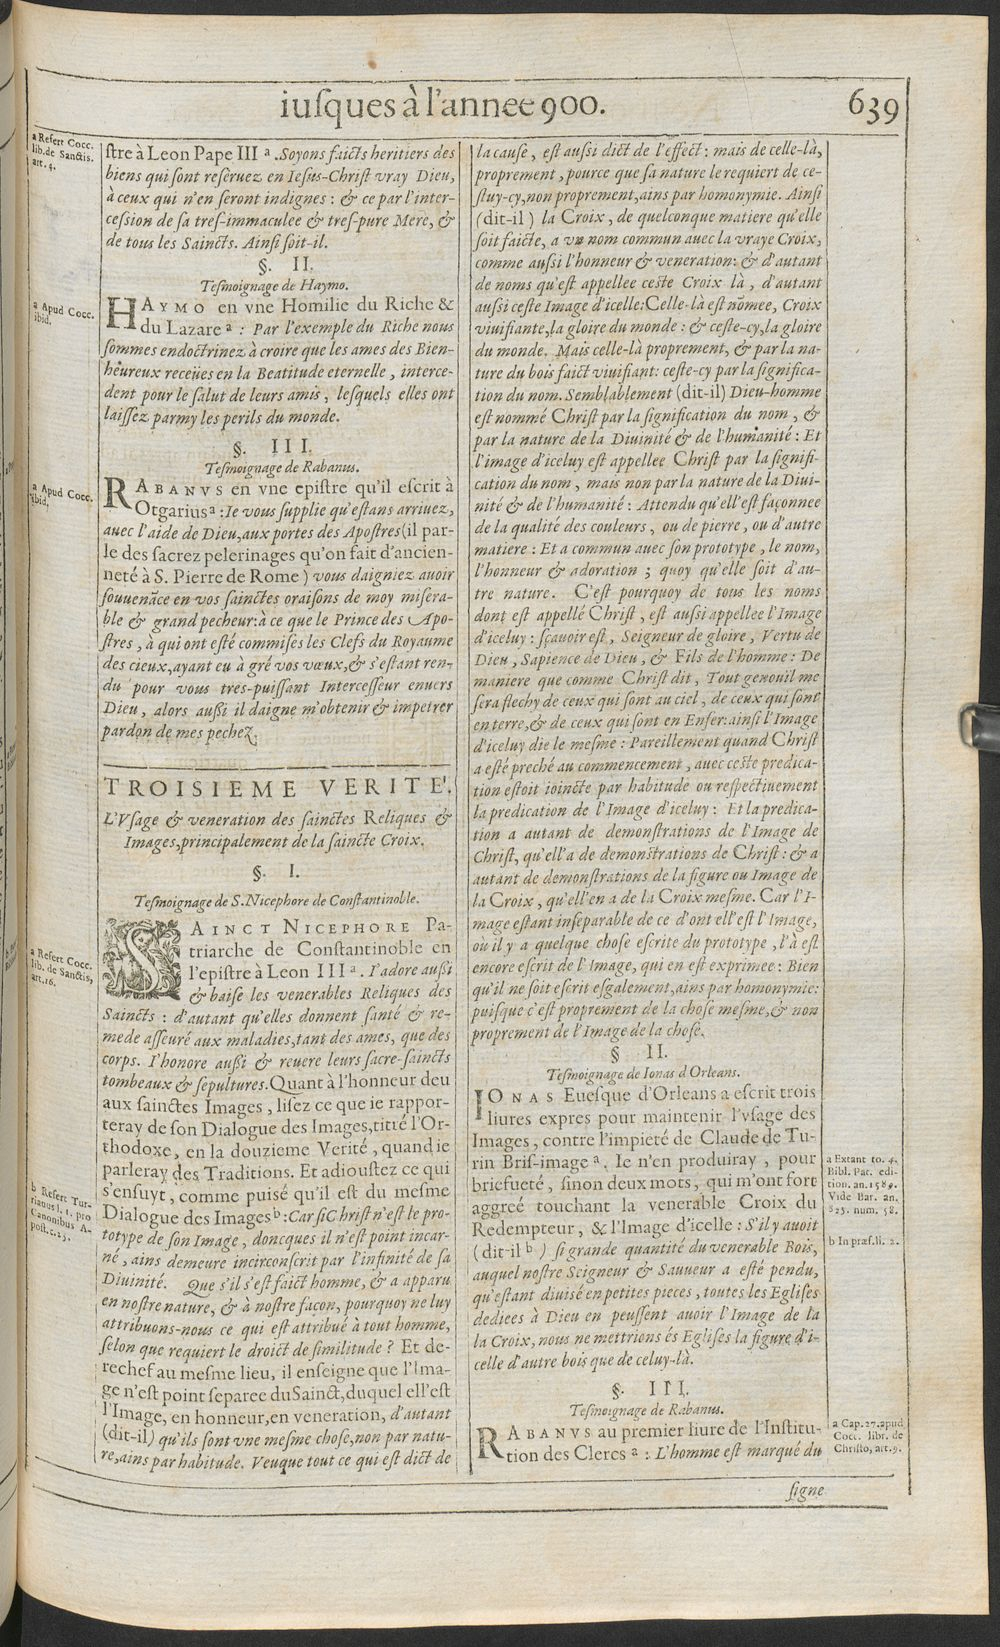 iusques à l'annee 900.
639
a Refert Cocc.
lib. de Sanctis.
art. 4.
stre à Leon Pape III a. Soyons faicts heritiers des
biens qui sont reseruez en Iesus-Christ vray Dieu,
à ceux qui n'en seront indignes : & ce par l'inter-
cession de sa tres-immaculee & tres-pure Mere, &
de tous les Saincts. Ainsi soit-il.
§. II.
Tesmoignage de Haymo.
a Apud Cocc.
ibid.
HAYMO en vne Homilie du Riche &
du Lazare a : Par l'exemple du Riche nous
sommes endoctrinez à croire que les ames des Bien-
heureux receües en la Beatitude eternelle, interce-
dent pour le salut de leurs amis, lesquels elles ont
laissez parmy les perils du monde.
§. III.
Tesmoignage de Rabanus.
a Apud Cocc.
ibid.
RABANVS en vne epistre qu'il escrit à
Otgarius a : Ie vous supplie qu'estans arriuez,
auec l'aide de Dieu, aux portes des Apostres (il par-
le des sacrez pelerinages qu'on fait d'ancien-
neté à S. Pierre de Rome) vous daigniez auoir
souuenãce en vos sainctes oraisons de moy misera-
ble & grand pecheur: à ce que le Prince des Apo-
stres, à qui ont esté commises les Clefs du Royaume
des cieux, ayant eu à gré vos vœux, & s'estant ren-
du pour vous tres-puissant Intercesseur enuers
Dieu, alors aussi il daigne m'obtenir & impetrer
pardon de mes pechez.
TROISIEME VERITE'.
L'Vsage & veneration des sainctes Reliques &
Images, principalement de la saincte Croix.
§. I.
Tesmoignage de S. Nicephore de Constantinoble.
a Refert Cocc.
lib. de Sanctis,
art. 16.
SAINCT NICEPHORE Pa-
triarche de Constantinoble en
l'epistre à Leon III a. I'adore aussi
& baise les venerables Reliques des
Saincts : d'autant qu'elles donnent santé & re-
mede asseuré aux maladies, tant des ames, que des
corps. I'honore aussi & reuere leurs sacre-saincts
tombeaux & sepultures. Quant à l'honneur deu
aux sainctes Images, lisez ce que ie rappor-
teray de son Dialogue des Images, titré l'Or-
thodoxe, en la douzieme Verité, quand ie
parleray des Traditions. Et adioustez ce qui
s'ensuyt, comme puisé qu'il est du mesme
Dialogue des Images b : Car si Christ n'est le pro-
totype de son Image, doncques il n'est point incar-
né, ains demeure incirconscrit par l'infinité de sa
Diuinité. Que s'il s'est faict homme, & a apparu
en nostre nature, & à nostre façon, pourquoy ne luy
attribuons-nous ce qui est attribué à tout homme,
selon que requiert le droict de similitude ? Et de-
rechef au mesme lieu, il enseigne que l'Ima-
ge n'est point separee du Sainct, duquel ell'est
l'Image, en honneur, en veneration, d'autant
(dit-il) qu'ils sont vne mesme chose, non par natu-
re, ains par habitude. Veuque tout ce qui est dict de
b Refert Tur-
rianus l. 1. pro
Canonibus A-
post. c. 25.
la cause, est aussi dict de l'effect : mais de celle-là,
proprement, pource que sa nature le requiert de ce-
stuy-cy, non proprement, ains par homonymie. Ainsi
(dit-il) la Croix, de quelconque matiere qu'elle
soit faicte, a vn nom commun auec la vraye Croix,
comme aussi l'honneur & veneration: & d'autant
de noms qu'est appellee ceste Croix là, d'autant
aussi ceste Image d'icelle: Celle-là est nõmee, Croix
viuifiante, la gloire du monde : & ceste-cy, la gloire
du monde. Mais celle-là proprement, & par la na-
ture du bois faict viuifiant: ceste-cy par la significa-
tion du nom. Semblablement (dit-il) Dieu-homme
est nommé Christ par la signification du nom, &
par la nature de la Diuinité & de l'humanité : Et
l'image d'iceluy est appellee Christ par la signifi-
cation du nom, mais non par la nature de la Diui-
nité & de l'humanité : Attendu qu'ell'est façonnee
de la qualité des couleurs, ou de pierre, ou d'autre
matiere : Et a commun auec son prototype, le nom,
l'honneur & adoration ; quoy qu'elle soit d'au-
tre nature. C'est pourquoy de tous les noms
dont est appellé Christ, est aussi appellee l'Image
d'iceluy : sçauoir est, Seigneur de gloire, Vertu de
Dieu, Sapience de Dieu, & Fils de l'homme : De
maniere que comme Christ dit, Tout genouil me
sera flechy de ceux qui sont au ciel, de ceux qui sont
en terre, & de ceux qui sont en Enfer: ainsi l'Image
d'iceluy die le mesme : Pareillement quand Christ
a esté preché au commencement, auec ceste predica-
tion estoit ioincte par habitude ou respectiuement
la predication de l'Image d'iceluy : Et la predica-
tion a autant de demonstrations de l'Image de
Christ, qu'ell'a de demonstrations de Christ : & a
autant de demonstrations de la figure ou Image de
la Croix, qu'ell'en a de la Croix mesme. Car l'I-
mage estant inseparable de ce d'ont ell'est l'Image,
où il y a quelque chose escrite du prototype, l'à est
encore escrit de l'Image, qui en est exprimee : Bien
qu'il ne soit escrit esgalement, ains par homonymie:
puisque c'est proprement de la chose mesme, & non
proprement de l'Image de la chose.
§ II.
Tesmoignage de Ionas d'Orleans.
IONAS Euesque d'Orleans a escrit trois
liures expres pour maintenir l'vsage des
Images, contre l'impieté de Claude de Tu-
rin Bris-image a. Ie n'en produiray, pour
briefueté, sinon deux mots, qui m'ont fort
aggreé touchant la venerable Croix du
Redempteur, & l'Image d'icelle : S'il y auoit
(dit-il b) si grande quantité du venerable Bois,
auquel nostre Seigneur & Sauueur a esté pendu,
qu'estant diuisé en petites pieces, toutes les Eglises
dediees à Dieu en peussent auoir l'Image de la
la Croix, nous ne mettriens és Eglises la figure d'i-
celle d'autre bois que de celuy-là.
a Extant to. 4.
Bibl. Pat. edi-
tion. an. 1589.
Vide Bar. an.
825. num. 58.
b In præf. li. 2.
§. III.
Tesmoignage de Rabanus.
RABANVS au premier liure de l'Institu-
tion des Clercs a : L'homme est marqué du
a Cap. 27. apud
Cocc. libr. de
Christo, art. 9.
signe